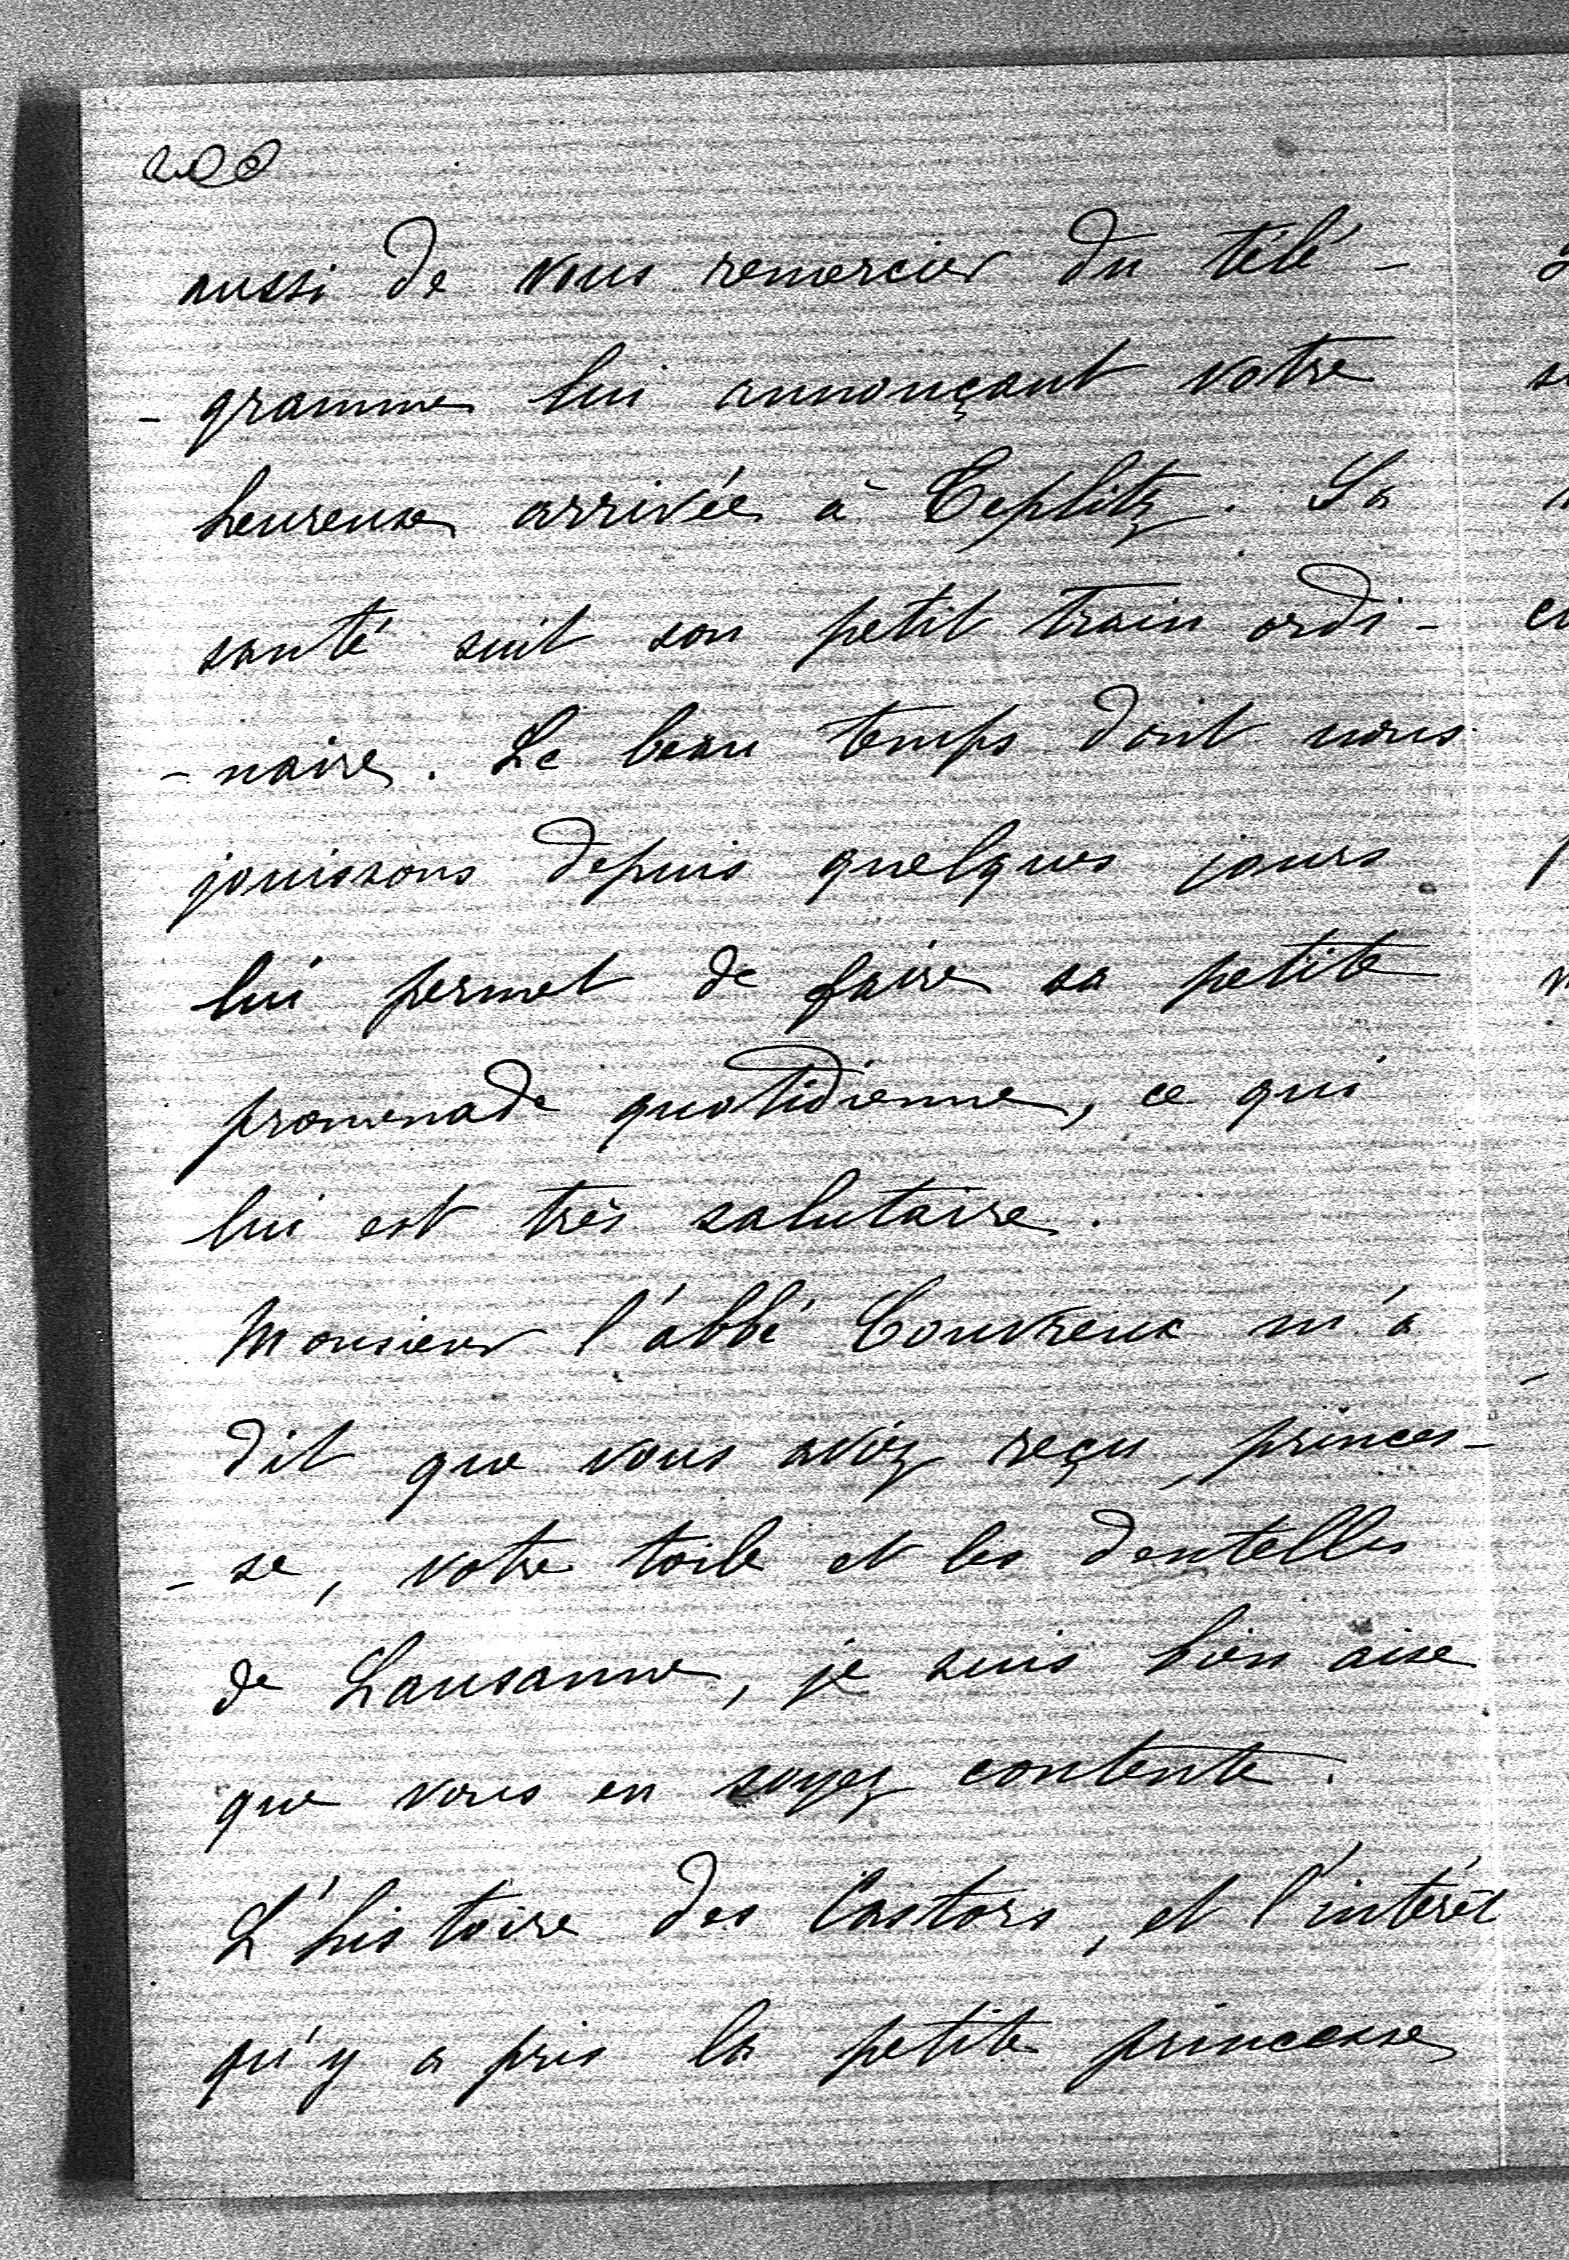 200
aussi de vous remercier du télé-
-gramme lui annonçant votre
heureuse arrivée à Teplitz. Sa
santé suit son petit train ordi-
-naire. Le beau temps dont nous
jouissons depuis quelques jours
lui permet de faire sa petite
promenade quotidienne, ce qui
lui est très salutaire.
Monsieur l'abbé Couvreux m'a
dit que vous aviez reçu, princes-
-se, votre toile et les dentelles
de Lausanne, je suis bien aise
que vous en soyez contente.
L'histoire des Castors, et l'intérêt
qu'y a pris la petite princesse